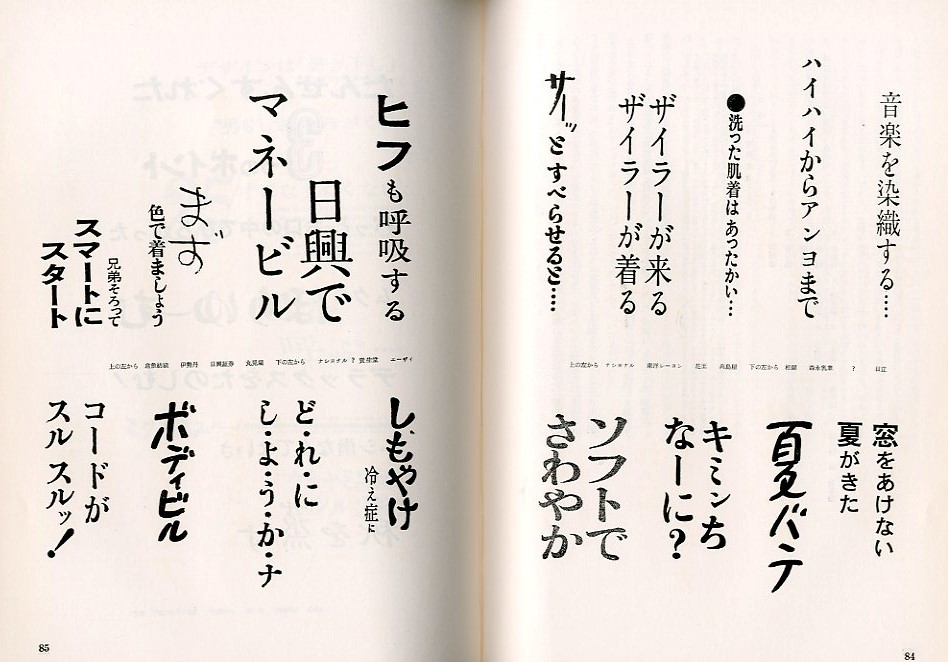 音楽を染織する…
ハイハイからアンヨまで
●洗った肌着はあったかい…
ザイラーが来る
ザイラーが着る
サーッとすべらせると…
上の左から ナショナル 東洋レーヨン 花王 高島屋 下の左から 松脚 森永乳業 ? 日立
窓をあけない
夏がきた
夏バテ
キミンち
なーに?
ソフトで
さわやか
84
ヒフも呼吸する
日興で
マネービル
まず
色で着ましょう
兄弟そろって
スマートに
スタート
上の左から 倉敷紡績 伊勢丹 日興証券 丸見屋 下の左から ナショナル ? 養生堂 エーザイ
しもやけ
冷え症に
ど・れ・に
し・よ・う・か・ナ
ボディビル
コードが
スルスルッ!
85